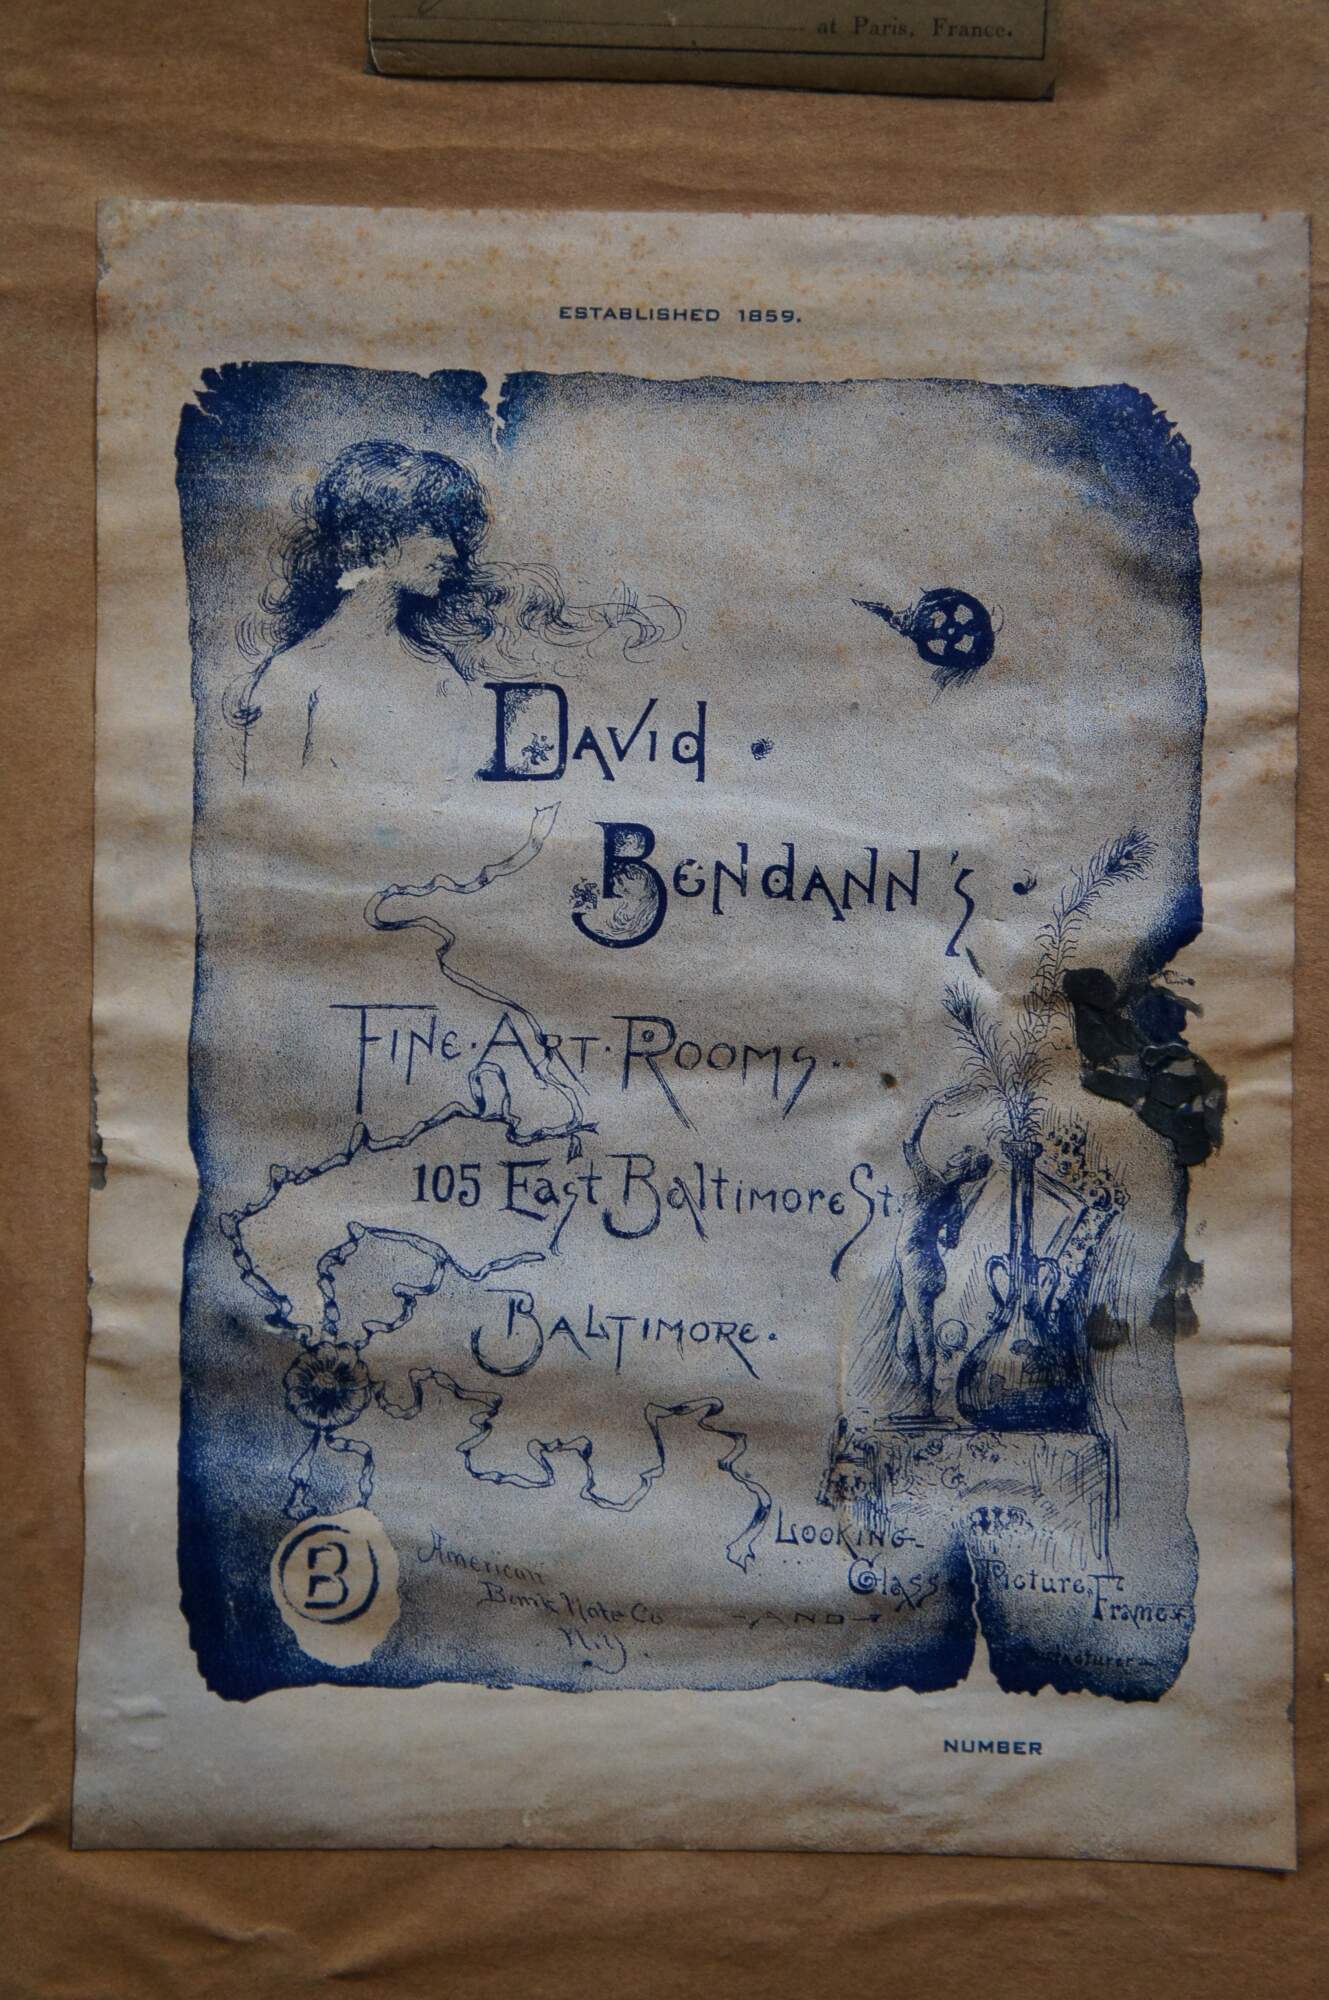 at Paris, France.
ESTABLISHED 1859.
DAVID
BENDANN'S
FINE·ART·ROOMS.
105 East Baltimore St.
BALTIMORE.
LOOKING-
Glass Picture, Frames
-AND-
B
American
Bank Note Co
N.Y.
NUMBER